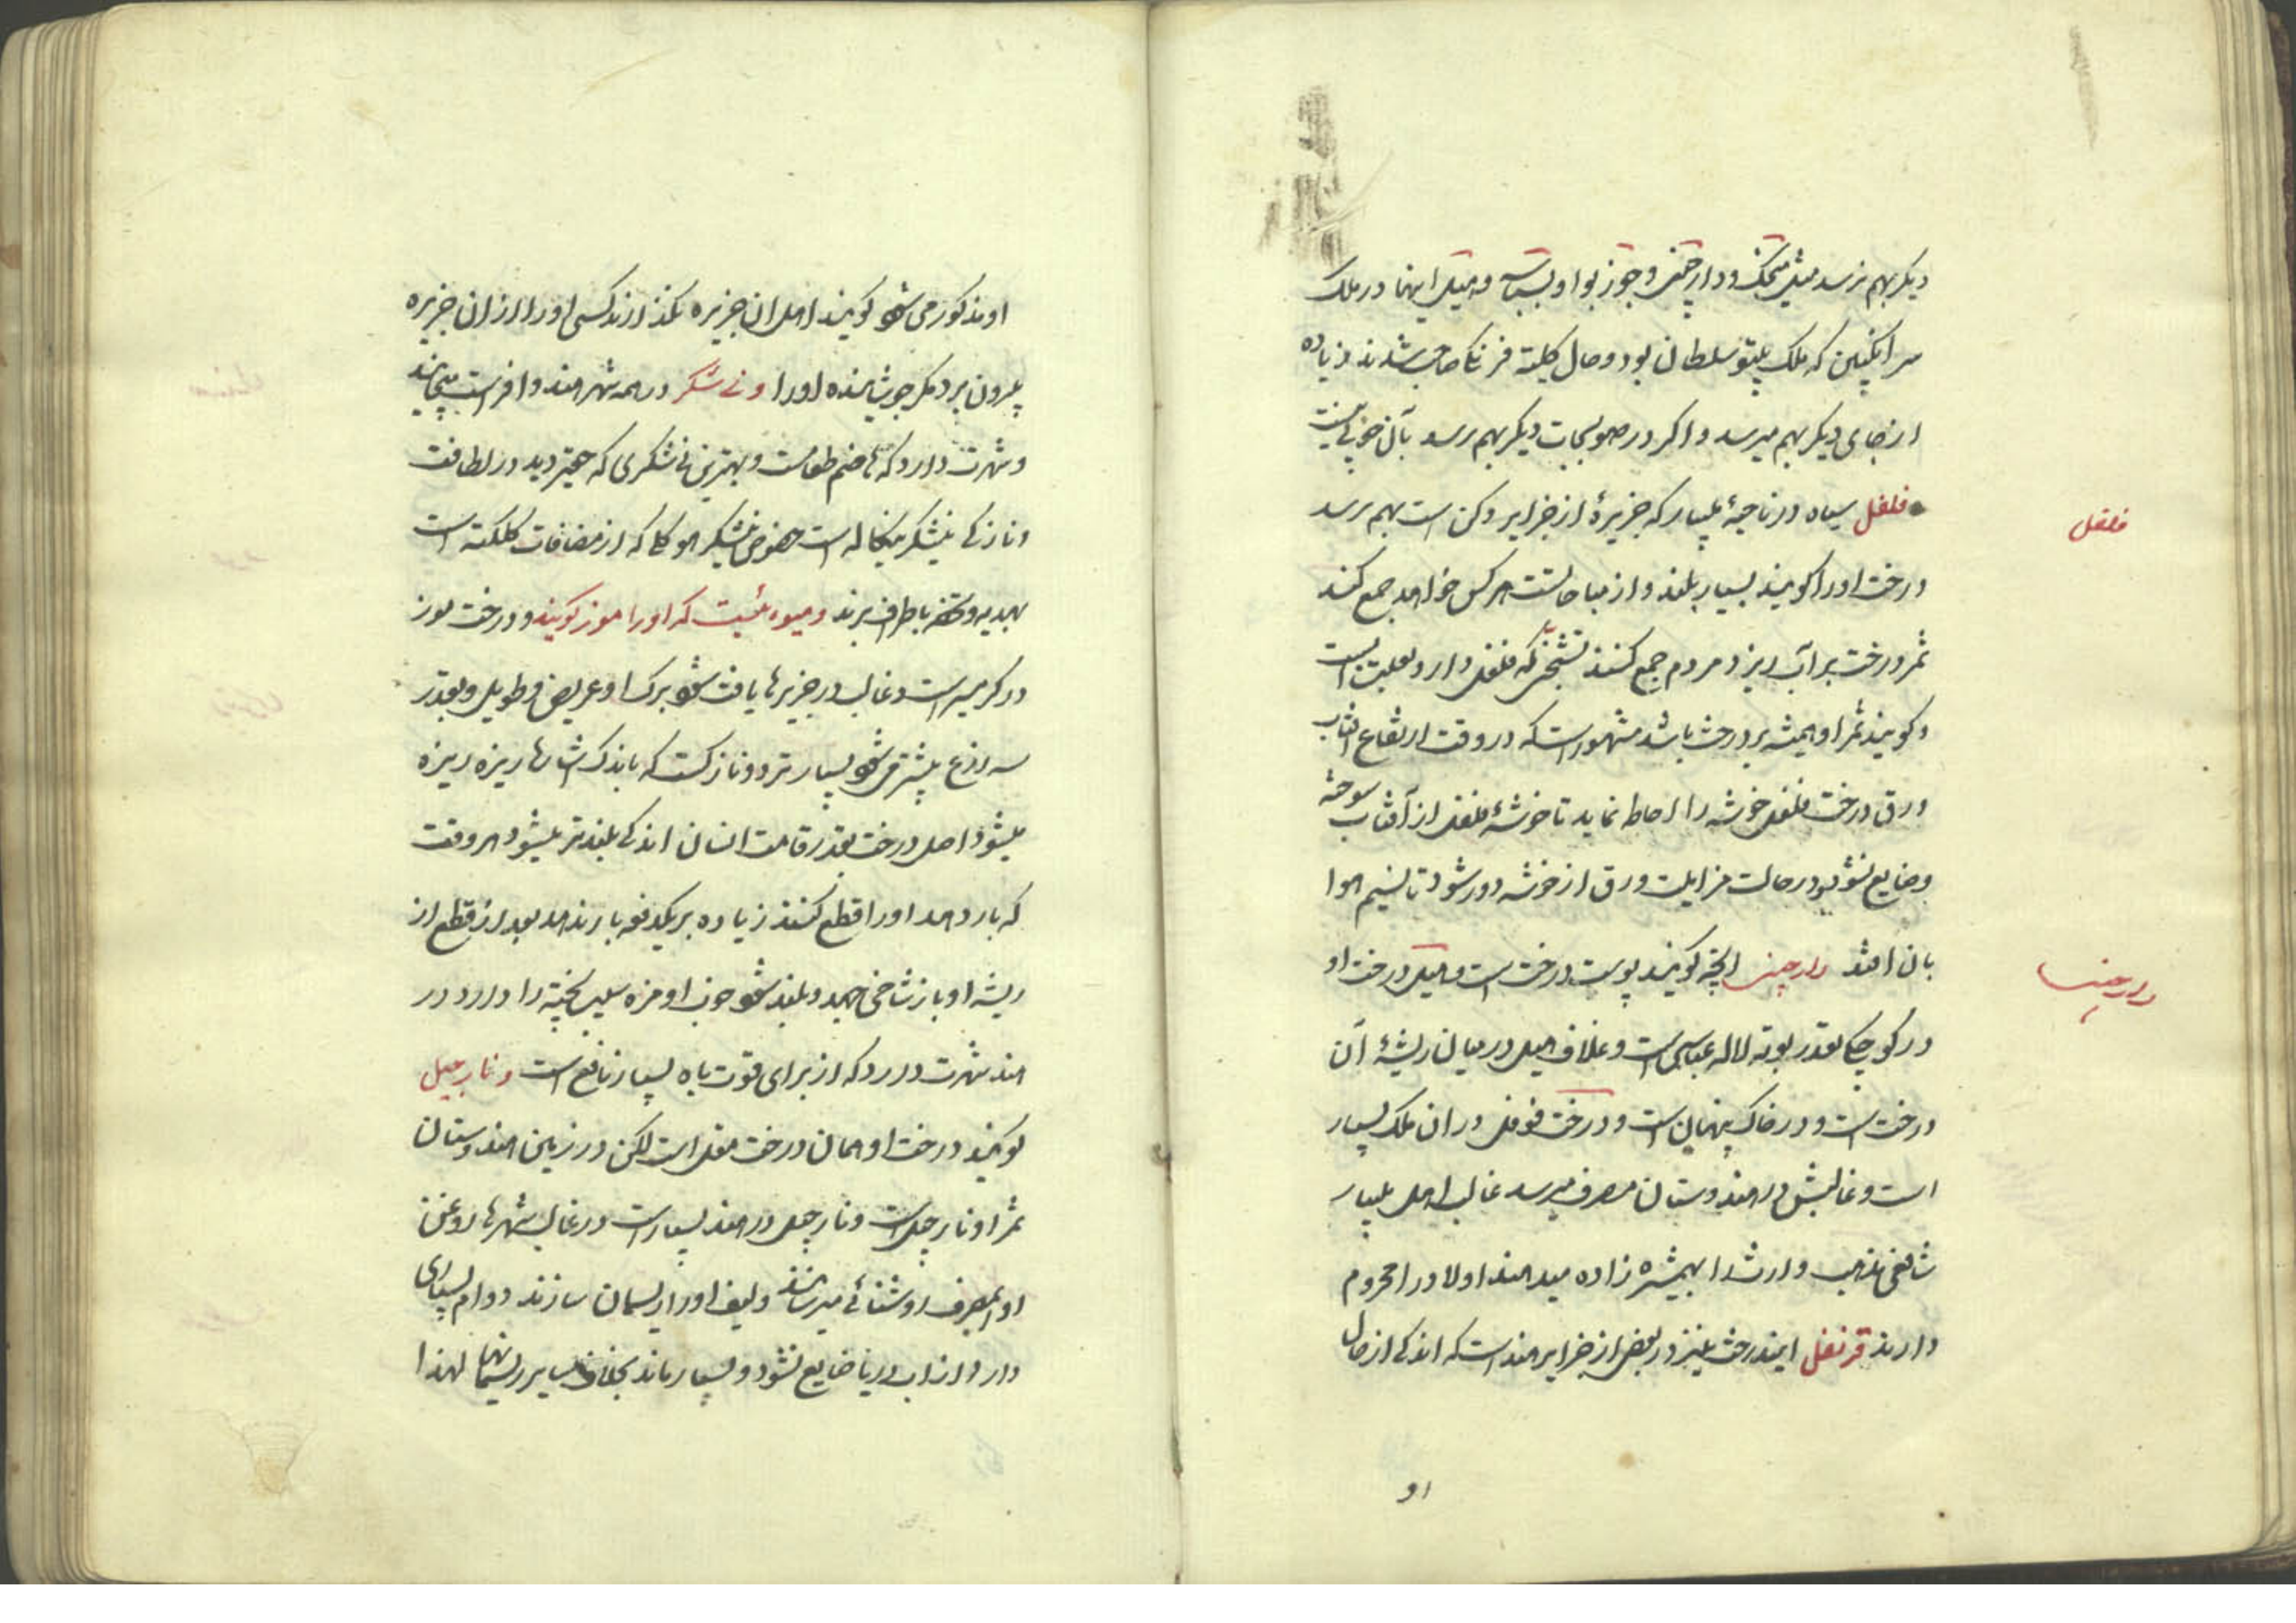 دیکر بهم نرسد مثل میخک ودارچینی وجوز بوا و بسباسه وهیل اینها در ملک
سرانکپتن که ملک تیپو سلطان بود وحال کلیته فرنک صاحب شدند زیاده
از جای دیکر بهم میرسد واکر در صوبجات دیکر بهم رسد بآن خوبی نیست
فلفل سیاه در ناحیهٔ ملیبار که جزیرهٔ از جزایر دکن است بهم رسد
درخت اورا کویند بسیار بلند واز مباحاتست هرکس خواهد جمع کند
ثمر درخت بر آب ریزد مردم جمع کنند که فلفل دارد است
وکویند ثمر او همیشه بر درخت باشد مشهور است که در وقت ارتفاع افتاب
ورق درخت فلفل خوشه را احاطه نماید تا خوشهٔ فلفل از آفتاب سوخته
وضایع نشود ودر حالت مزایلت ورق از خوشه دور شود تا نسیم هوا
بان افتد دارچینی انچه کویند پوست درخت است وهیل درخت او
در کوچکی بقدر بوته لاله عباسی است وغلاف هیل در میان ریشهٔ آن
درخت است ودر خاک پنهان است ودرخت فوفل در ان ملک بسیار
است وغالبش در هندوستان مصرف میرسد غالب اهل ملیبار
شافعی مذهب وارث را بهمشیره زاده میدهند اولاد را محروم
دارند قرنفل ایندرخت نیز در بعضی از جزایر هند است که اندکی از حال
او
فلفل
دارچینی
او مذکور می شود کویند اهل ان جزیره نکذارند کسی اورا از ان جزیره
بیرون برد مکر جوشانیده اورا ونی شکر در همه شهر هند وافر است
وشهرت دارد که هاضم طعامست وبهترین نی شکری که حقیر دید در لطافت
ونازکی نیشکر بنکاله است خصوص نیشکر هوکلی که از مضافات کلکته است
بهدیه وتحفه باطراف برند ومیوه ئیست که اورا موز کویند ودرخت موز
در کرمسیر است وغالب در جزیرها یافت شود برک او عریض وطویل وبقدر
سه ذرع بیشتر می شود بسیار تر ونازکست که باندک ریزه ریزه
میشود اصل درخت بقدر قامت انسان اندکی بلندتر میشود هر وقت
که بار دهد اورا قطع کنند زیاده بر یکدفعه بار ندهد بعد از قطع از
ریشه او باز شاخی جهد وبلند شود چون او مزه سیب پخته را دارد در
هند شهرت دارد که از برای قوت باه بسیار نافع است ونارجیل
کویند درخت او همان درخت مقل است لکن در زمین هندوستان
ثمر او نارجیل است ونارجیل در هند بسیار است در غالب شهرها روغن
اورا بمصرف روشنائی میرسانند ولیف اورا ریسمان سازند دوام بسیاری
دارد از اب دریا ضایع نشود وبسیار ماند بخلاف سایر ریسمانها لهذا